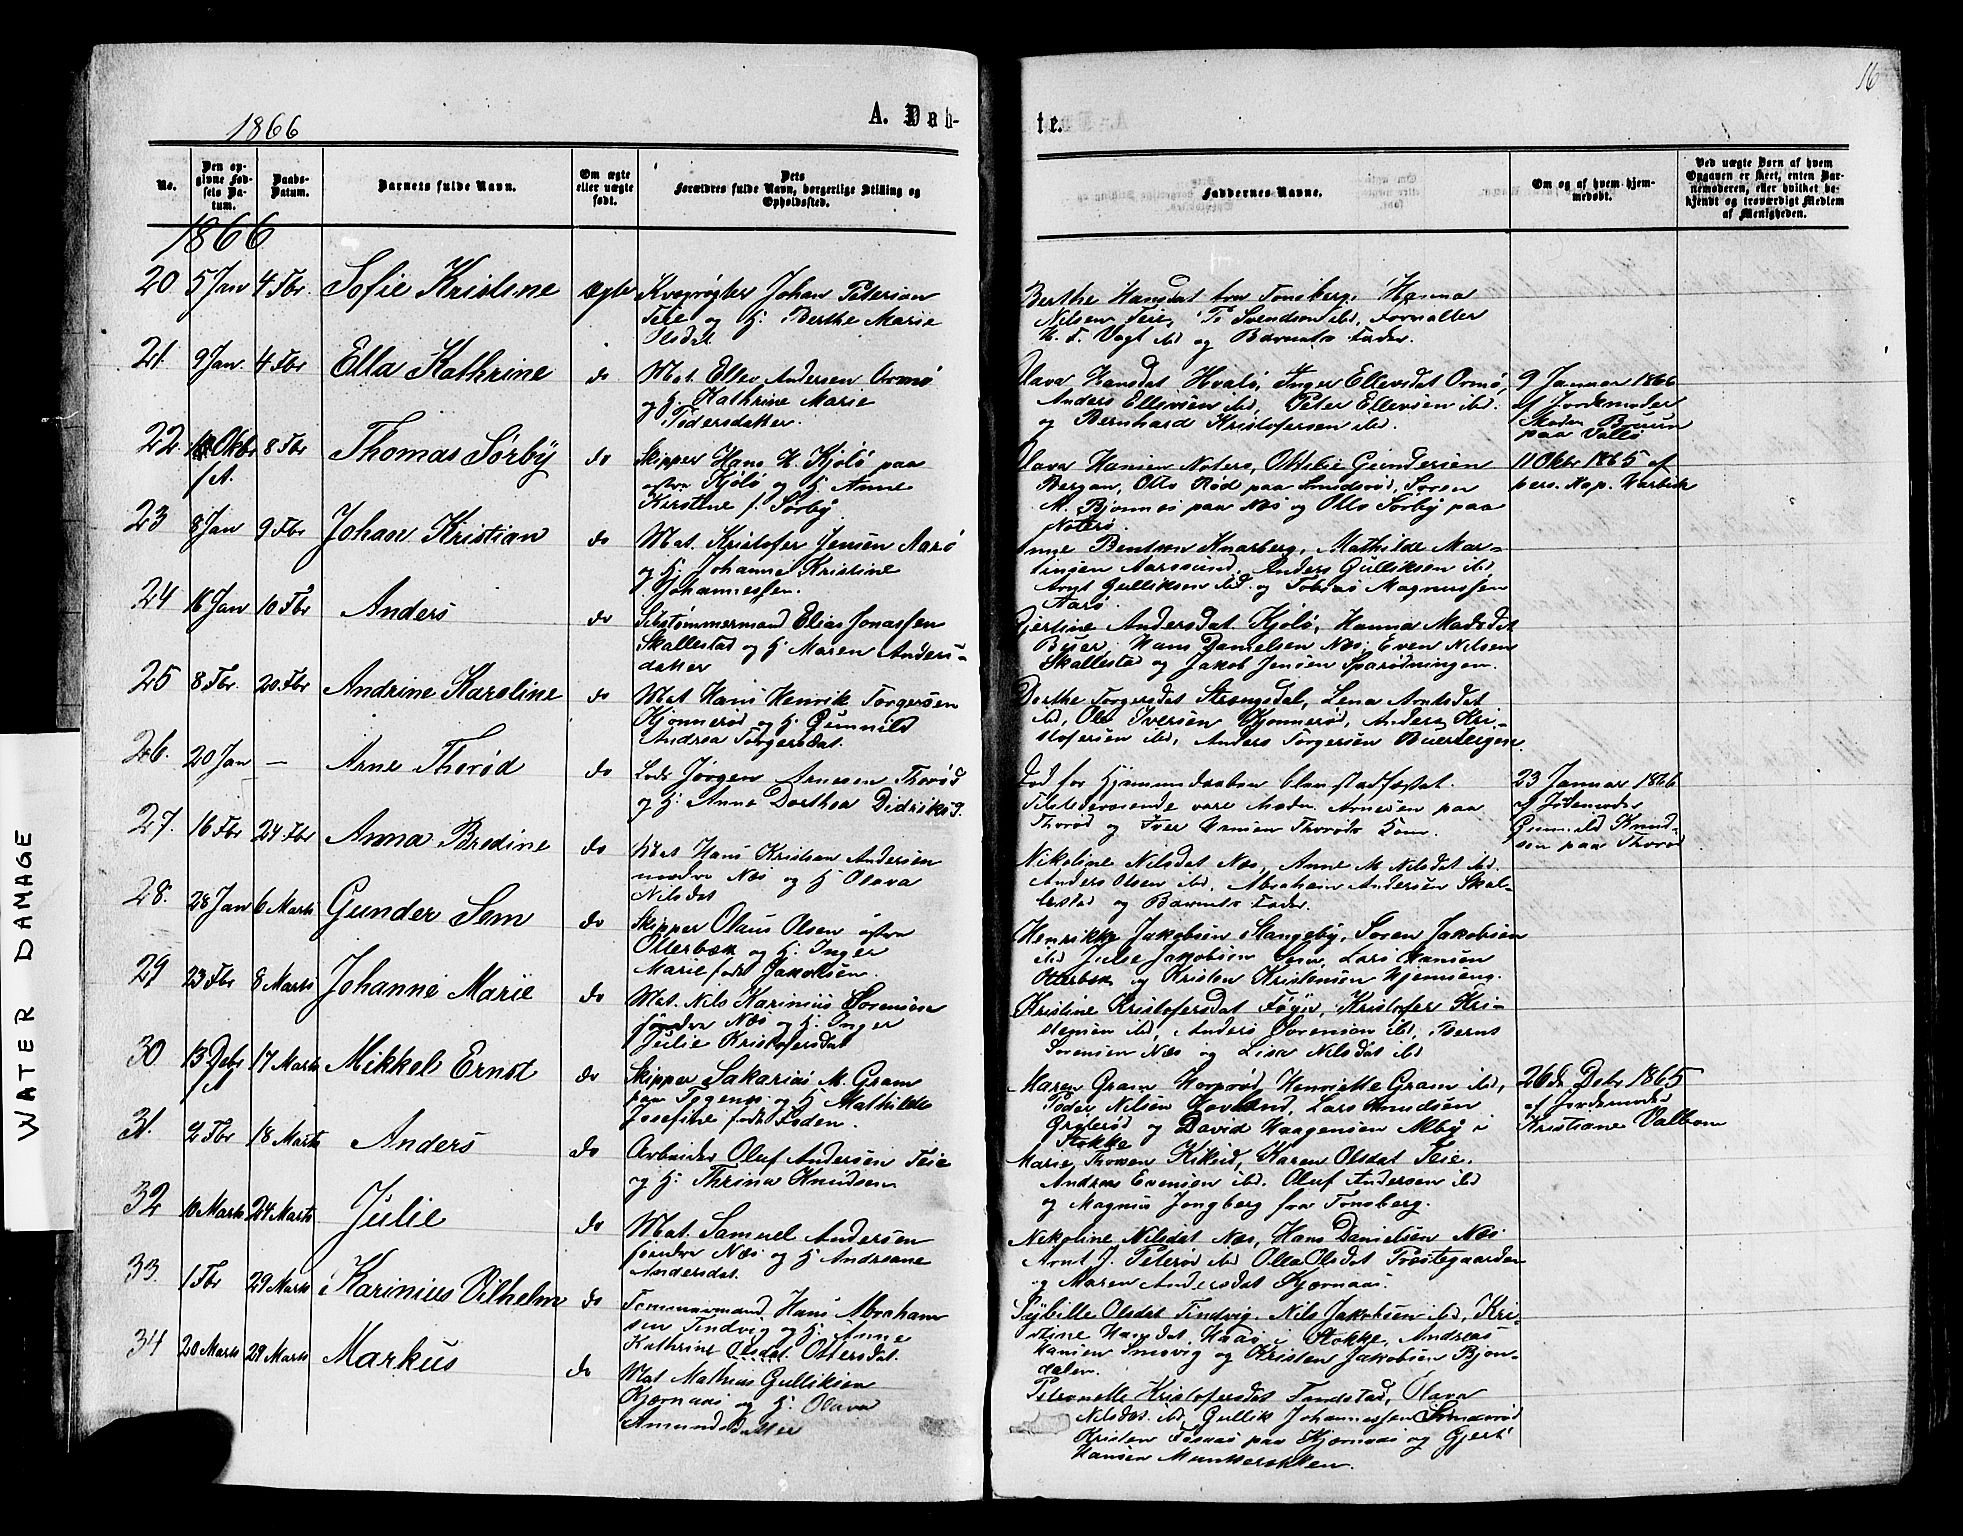 16
1866
A. Døb-
te.
No.
Den opgivne Fødsels Datum.
Daabs-Datum.
Barnets fulde Navn.
Om ægte eller uægte født.
Dets Forældres fulde Navn, borgerlige Stilling og Opholdssted.
Faddernes Navne.
Om og af hvem hjemmedøbt.
Ved uægte Børn af hvem Opgaven er skeet, enten Barnemoderen, eller hvilket bekjendt og troværdigt Medlem af Menigheden.
1866
20 5 Jan 4 Fbr. Sofie Kristine ægte
Kvægrøgter Johan Petersen
Teie og H: Berthe Marie
Olsdat.
Berthe Hansdat fra Tønsberg, Hanna
Nilsen Teie, Svendsen ibd, Forvalter
Vogt ibd og Barnets Fader.
21. 9 Jan 4 Fbr Ella Kathrine do
Mat. Ellev Andersen Ormø
og H. Kathrine Marie
Pedersdatter.
Olava Hansdat Hvalø, Inger Ellevsdat Ormø,
Anders Ellevsen ibd, Peter Ellevsen ibd.
og Bernhard Kristofersen ibd.
9 Januar 1866
af Jordemoder
Bruun
paa Vallø
22. Oktbr f.A. 8 Fbr Thomas Sørby do
Skipper Hans H. Kjølø paa
østre Kjølø og H Anne
Kirstine f. Sørby.
Olava Hansen Noterø, Ottilie Gundersen
Bergan, Otto Rød paa Smidsrød, Søren
M. Bjønnes paa Næs og Otto Sørby paa
Noterø.
11 Oktbr 1865 af
pers. Kap. Narbeck
23 8 Jan 9 Fbr Johan Kristian do
Mat. Kristofer Jensen Aarø
og H. Johanne Kristine
Johannessen.
Anne Bentsen Knarberg, Mathilde Mar-
tinsen Aarøsund, Anders Gulliksen ibd
Gulliksen ibd. og Tobias Magnussen
Aarø.
24 16 Jan 10 Fbr Anders do
Skibstømmermand Elias Jonassen
Skallestad og H Maren Anders-
datter
Andersdat Kjølø, Hanna Madsdat
Buer, Hans Danielsen Næs, Even Nilsen
Skallestad og Jakob Jensen Sparødningen.
25 8 Fbr. 20 Fbr Andrine Karoline do
Mat Hans Henrik Torgersen
Kjønnerød og H Gunnild
Andrea Torgersdat.
Dorthe Torgersdat Strengsdal, Lena Arntsdat
ibd, Ole Iversen Kjønnerød, Anders Kri-
stofersen ibd, Anders Torgersen Buerbergen.
26. 20 Jan — Arne Thorød do
Lods Jørgen Arnesen Thorød
og H. Anne Dorthea Didriksd.
Død før Hjemmedaaben blev stadfæstet.
Tilstedeværende vare Arnesen paa
Thorød og Iver Hansen Thorøds Kone.
23 Januar 1866
af Jordemoder
Gunnild Knud-
sen paa Thorød
27. 16 Fbr 24 Fbr Anna Bredine do
Mat Hans Kristian Andersen
nordre Næs og H Olava
Nilsdat
Nikoline Nilsdat Næs, Anne M. Nilsdat ibd.
Anders Olsen ibd, Abraham Andersen Skal-
lestad og Barnets Fader.
28. 28 Jan 6 Marts Gunder Sem do
Skipper Olaus Olsen østre
Otterbæk og H. Inger
Marie født Jakobsen.
Henrikke Jakobsen Stangeby, Søren Jakobsen
ibd Julie Jakobsen Sem, Lars Hansen
Otterbæk og Kristen Kristensen Hjemseng.
29 23 Fbr 8 Marts Johanne Marie do
Mat. Nils Karinius Sørensen
søndre Næs og H. Inger
Julie Kristofersdat
Kristine Kristofersdat Føyn, Kristofer Kri-
stensen ibd, Anders Sørensen ibd, Bernt
Sørensen Næs og Lise Nilsdat ibd
30. 13 Debr f.A. 17 Marts Mikkel Ernst do
Skipper Sakarias M. Gram
paa og H Mathilde
Josefine født Foden.
Maren Gram Horperød, Henriette Gram ibd,
Peder Nilsen Hovland, Lars Knudsen
Grøterød og David Haagensen Alby i
Stokke
26de Debr 1865
af Jordemoder
Kristiane Valbom
31. 2 Fbr 18 Marts Anders do
Arbeider Oluf Andersen Teie
og H. Thrine Knudsen
Marie Thorsen Kikud, Karen Olsdat Teie.
Andreas Evensen ibd. Oluf Andersen ibd
og Magnus Jongberg fra Tønsberg.
32 10 Marts 24 Marts Julie do
Mat. Samuel Andersen
søndre Næs og H Andreane
Andersdat.
Nikoline Nilsdat Næs, Hans Danielsen Næs
Arnt J. Peterød ibd Olla Olsdat Præstegaarden
og Maren Andersdat Kjærnaas.
33. 1 Fbr 29 Marts Karinius Vilhelm do
Tømmermand Hans Abraham-
sen Tindvig og H. Anne
Kathrine Olsdat Ottersdat.
Sybille Olsdat Tindvig. Nils Jakobsen ibd, Kri-
stine Hansdat, Haas i Stokke, Andreas
Hansen Smevig og Kristen Jakobsen Bjøn-
dalen.
34 20 Marts 29 Marts Markus do
Mat Mathias Gulliksen
Kjærnaas og H: Olava
Amundsdatter
Petronelle Kristofersdat Tandstad, Olava
Nilsdat ibd, Gullik Johannessen Smaarød
Kristen Fosnæs paa Kjærnaas og Gjert
Hansen Munkerekken.
WATER DAMAGE